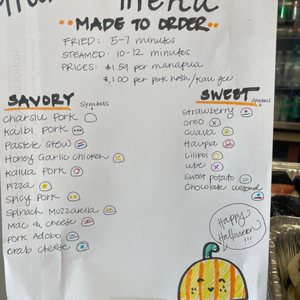 Menu
MADE TO ORDER
FRIED: 5-7 minutes
STEAMED: 10-12 minutes
PRICES: $1.50 per manapua
$1.00 per pork hash/
SAVORY
Symbols
charsiu Pork
Kalbi Pork
Pastele Stew
Honey Garlic Chicken
Kalua Pork
Pizza
Spicy Pork
Spinach Mozzarella
Mac & cheese
Pork Adobo
crab cheese
SWEET
Symbols
Strawberry
Oreo
Guava
Haupia
Lilikoi
ube
Sweet Potato
Chocolate
Happy
Halloween
!!!